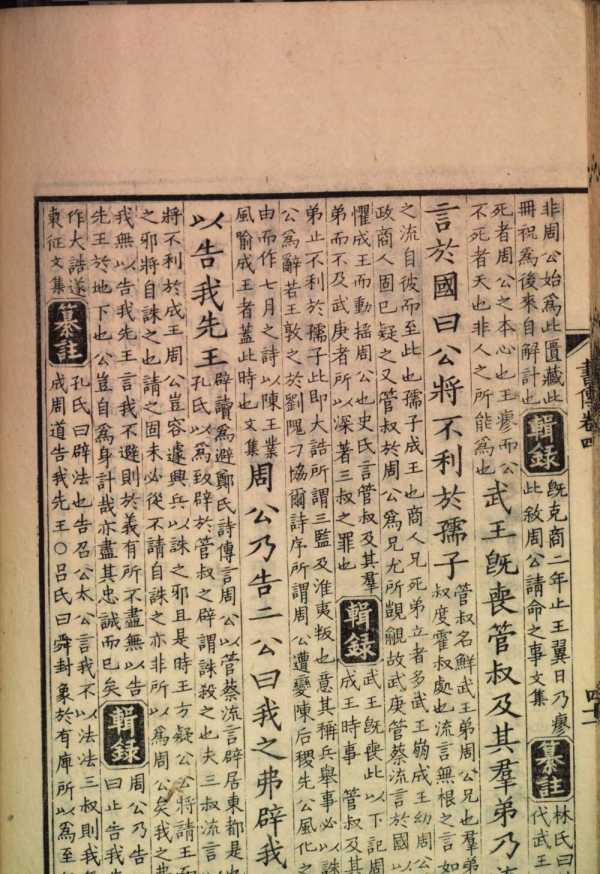 書傳卷四
非周公始爲此匱藏此
冊祝爲後來自解計也
輯錄
既克商二年止王翼日乃瘳
此敘周公請命之事文集
纂註
林氏曰
代武王
死者周公之本心也王瘳而公
不死者天也非人之所能爲也
武王既喪管叔及其羣弟乃流
言於國曰公將不利於孺子
管叔名鮮武王弟周公兄也羣弟
叔度霍叔處也流言無根之言如
之流自彼而至此也孺子成王也商人兄死弟立者多武王崩成王幼周公
政商人固已疑之又管叔於周公爲兄尤所覬覦故武庚管蔡流言於國以
懼成王而動搖周公也史氏言管叔及其羣
弟而不及武庚者所以深著三叔之罪也
輯錄
武王既喪此以下記周
成王時事 管叔及其
弟止不利於孺子此即大誥所謂三監及淮夷叛也意其稱兵舉事必以誅
公爲辭若王敦之於劉隗刁協爾詩序所謂周公遭變陳后稷先公風化之
由而作七月之詩以陳王業
風喻成王者蓋此時也文集
周公乃告二公曰我之弗辟我
以告我先王
辟讀爲避鄭氏詩傳言周公以管蔡流言辟居東都是也
孔氏以爲致辟於管叔之辟謂誅殺之也夫三叔流言以
將不利於成王周公豈容遽興兵以誅之邪且是時王方疑公公將請王而
之邪將自誅之也請之固未必從不請自誅之亦非所以爲周公矣我之弗
我無以告我先王言我不避則於義有所不盡無以告
先王於地下也公豈自爲身計哉亦盡其忠誠而已矣
輯錄
周公乃告
曰止告我先
作大誥遂
東征文集
纂註
孔氏曰辟法也告召公太公言我不以法法三叔則我
成周道告我先王○呂氏曰舜封象於有庳所以爲至